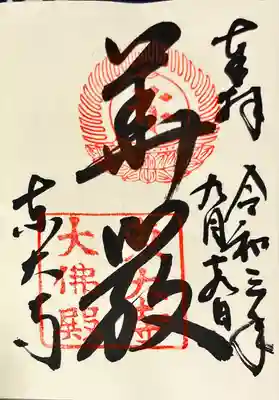 奉拝
令和三年
九月十九日
華厳
東大寺
大佛殿
東大寺